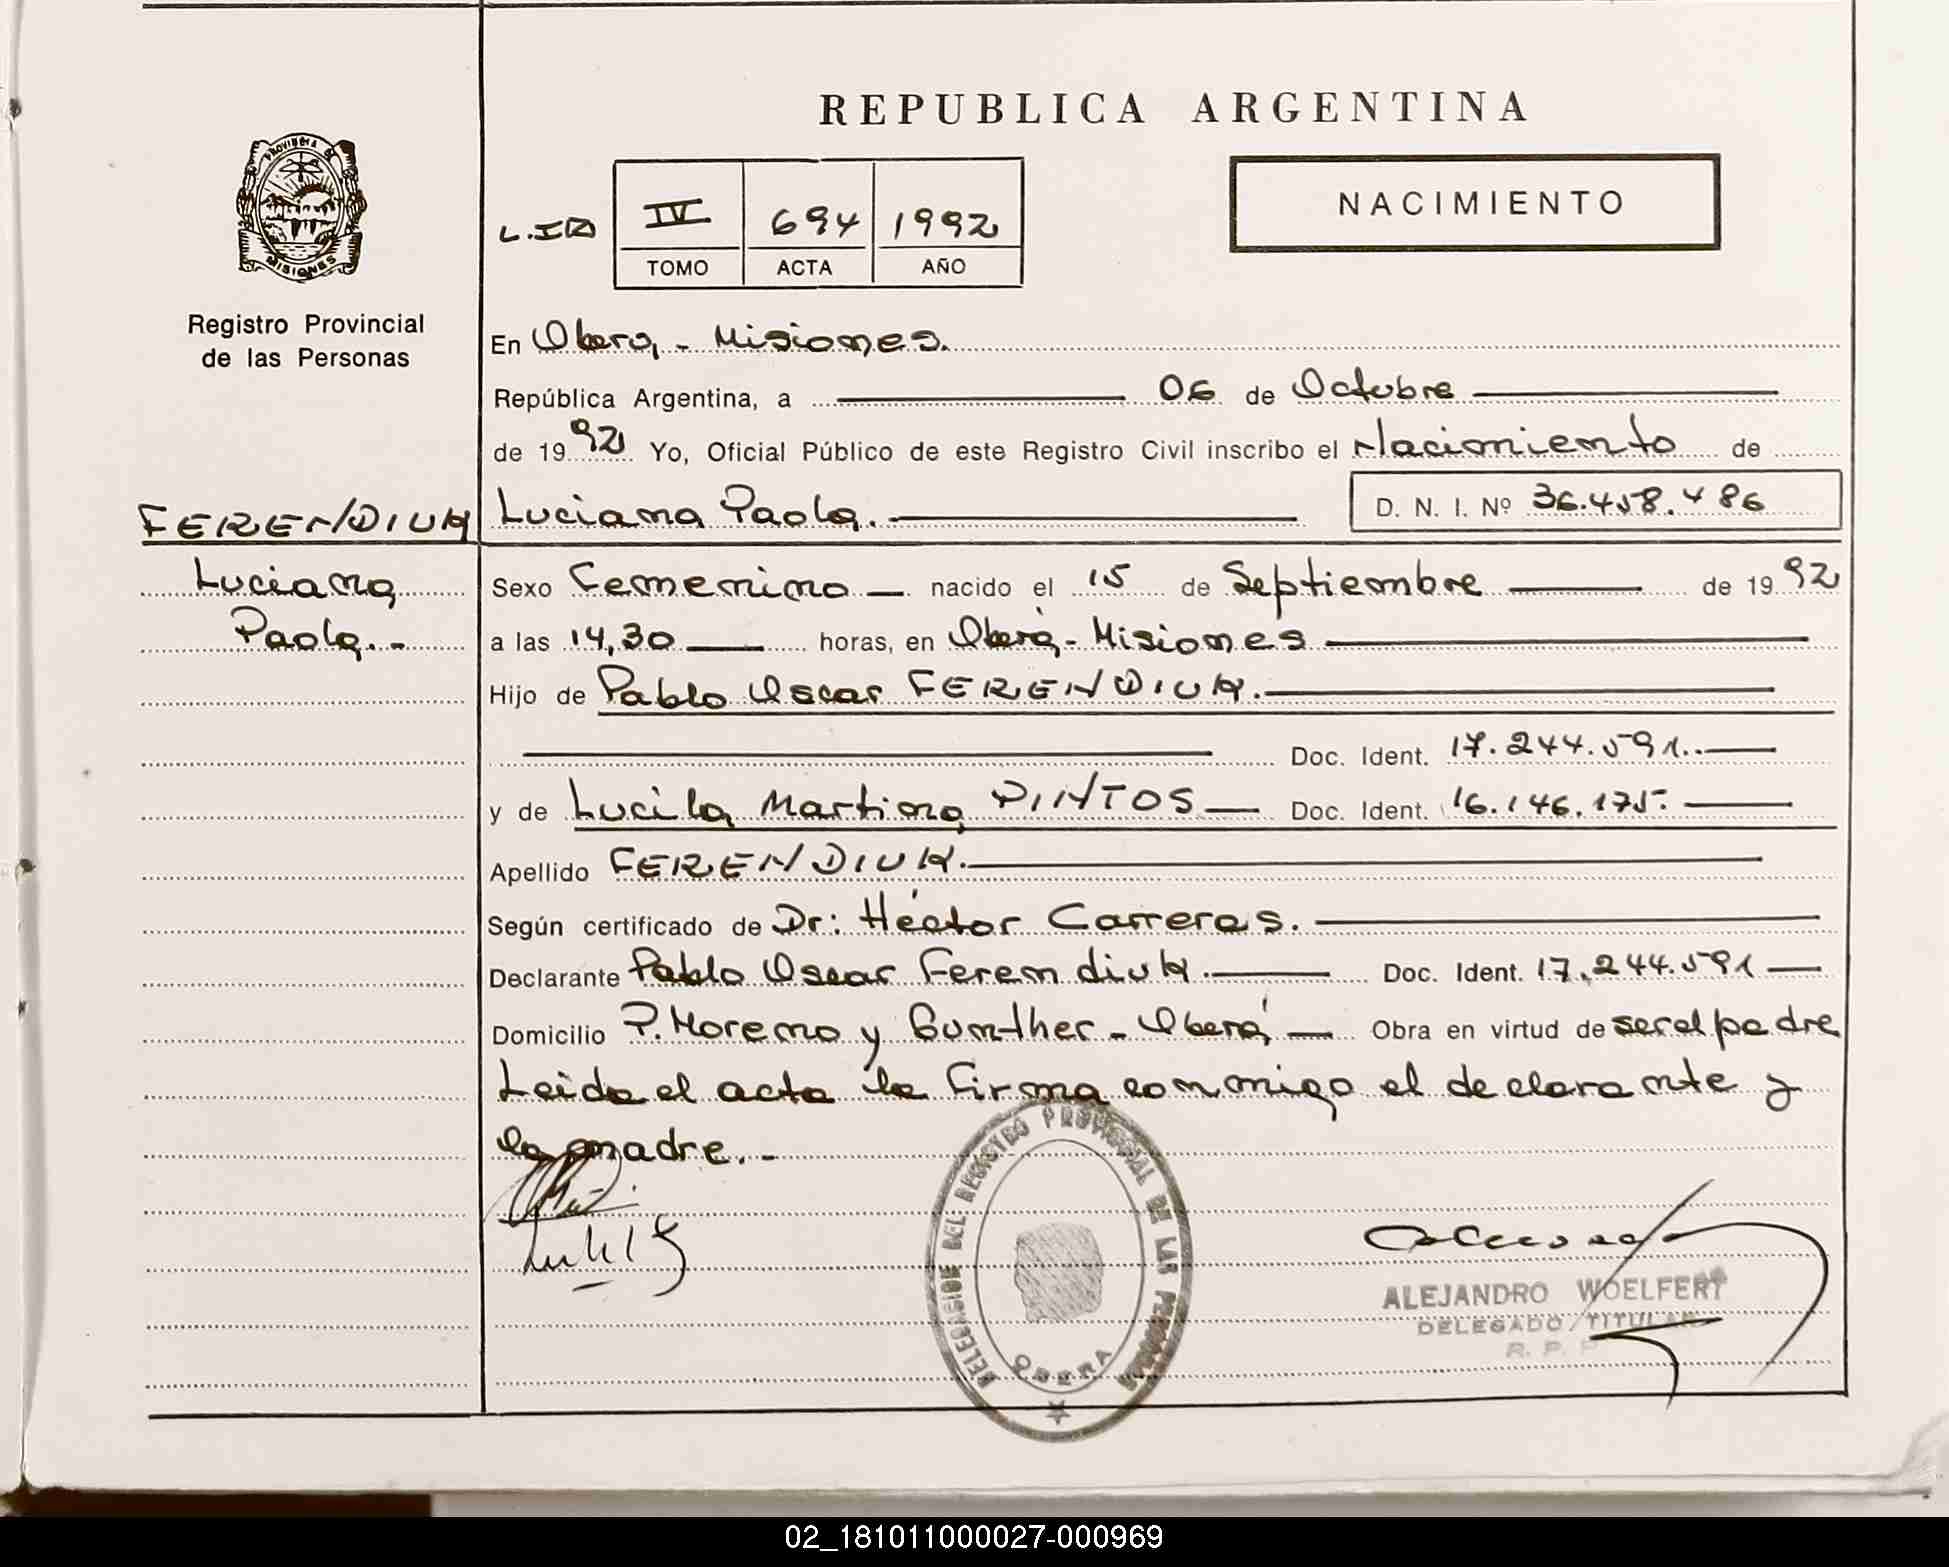 REPUBLICA ARGENTINA
PROVINCIA DE
MISIONES
Registro Provincial
de las Personas
IV 694 1992
TOMO ACTA AÑO
NACIMIENTO
En Obera, - Misiones.
República Argentina, a 06 de Octubre
de 19 92 Yo, Oficial Público de este Registro Civil inscribo el Nacimiento de
FERENDIUK
Luciana
Paola.-
Luciana Paola. D. N. I. Nº 36.458.486
Sexo Femenino nacido el 15 de Septiembre de 19 92
a las 14,30 horas, en Oberá - Misiones
Hijo de Pablo Oscar FERENDIUK.
Doc. Ident. 17.244.591.
y de Lucila Martina PINTOS Doc. Ident. 16.146.175.
Apellido FERENDIUK.
Según certificado de Dr: Héctor Carreras.
Declarante Pablo Oscar Ferendiuk. Doc. Ident. 17.244.591
Domicilio P. Moreno y Gunther - Oberá Obra en virtud de ser el padre
Leida el acta la firma conmigo el declarante y
la madre.-
DELEGACION DEL REGISTRO PROVINCIAL DE LAS PERSONAS
OBERA
ALEJANDRO WOELFERT
DELEGADO TITULAR
R. P. P.
02_181011000027-000969